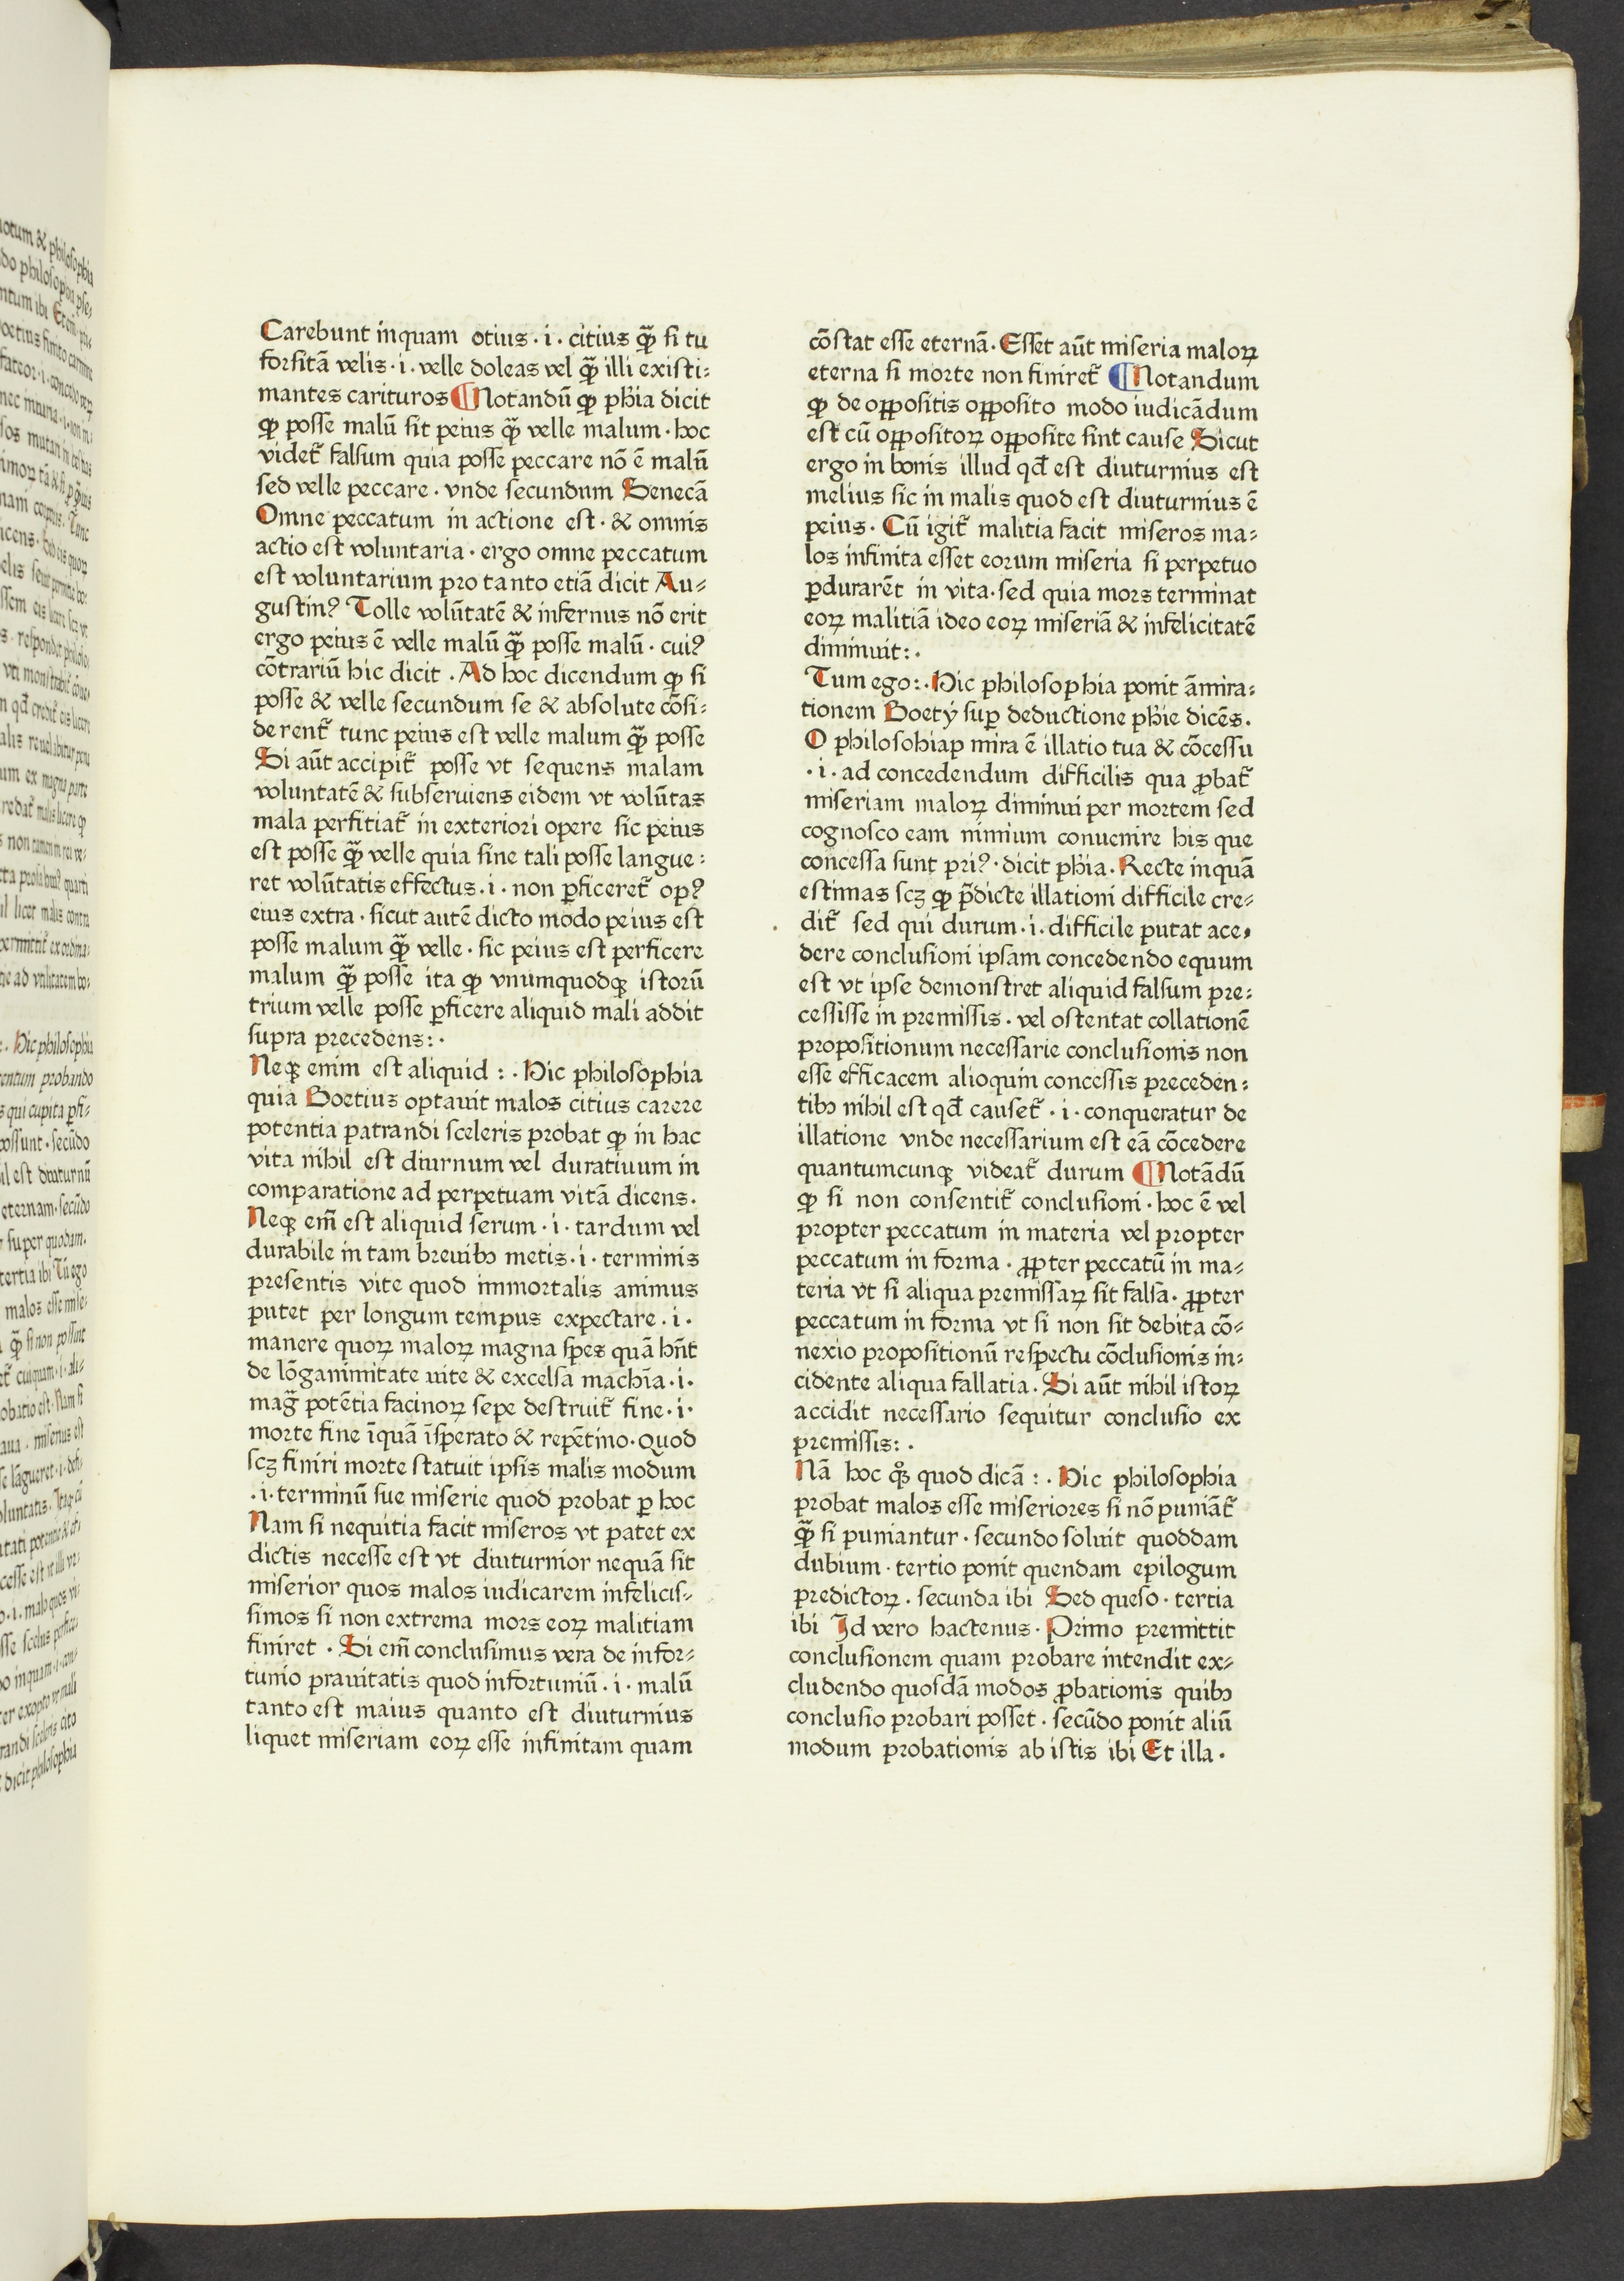 Carebunt inquam otius · i · citius qȝ̃ si tu
forsitā velis · i · velle doleas vel qȝ̃ illi existi:
mantes carituros ¶ Notandū ꝙ phīa dicit
ꝙ posse malū sit peius qȝ̃ velle malum · hoc
videt᷑ falsum quia posse peccare nō ē malū
sed velle peccare · vnde secundum Senecā
Omne peccatum in actione est · & omnis
actio est voluntaria · ergo omne peccatum
est voluntarium pro tanto etiā dicit Au-
gustinꝰ Tolle volūtatē & infernus nō erit
ergo peius ē velle malū qȝ̃ posse malū · cuiꝰ
cōtrariū hic dicit · Ad hoc dicendum ꝙ si
posse & velle secundum se & absolute cōsi:
derent᷑ tunc peius est velle malum qȝ̃ posse
Si aūt accipit᷑ posse vt sequens malam
voluntatē & subseruiens eidem vt volūtas
mala perfitiat᷑ in exteriori opere sic peius
est posse qȝ̃ velle quia sine tali posse langue:
ret volūtatis effectus · i · non ꝑficeret᷑ opꝰ
eius extra · sicut autē dicto modo peius est
posse malum qȝ̃ velle · sic peius est perficere
malum qȝ̃ posse ita ꝙ vnumquodqȝ istorū
trium velle posse ꝑficere aliquid mali addit
supra precedens: ·
Neqȝ enim est aliquid : · Hic philosophia
quia Boetius optauit malos citius carere
potentia patrandi sceleris probat ꝙ in hac
vita nihil est diurnum vel duratiuum in
comparatione ad perpetuam vitā dicens.
Neqȝ em̄ est aliquid serum · i · tardum vel
durabile in tam breuibꝫ metis · i · terminis
presentis vite quod immortalis animus
putet per longum tempus expectare · i ·
manere quoꝝ maloꝝ magna spes quā hn̄t
de lōganimitate uite & excelsa machīa · i ·
mag᷑ potētia facinoꝝ sepe destruit᷑ fine · i ·
morte fine īquā īsperato & repētino · quod
scȝ finiri morte statuit ipsis malis modum
· i · terminū sue miserie quod probat ꝑ hoc
Nam si nequitia facit miseros vt patet ex
dictis necesse est vt diuturnior nequā sit
miserior quos malos iudicarem infelicis-
simos si non extrema mors eoꝝ malitiam
finiret · Si em̄ conclusimus vera de infor-
tunio prauitatis quod infortuniū · i · malū
tanto est maius quanto est diuturnius
liquet miseriam eoꝝ esse infinitam quam
cōstat esse eternā · Esset aūt miseria maloꝝ
eterna si morte non finiret᷑ ¶ Notandum
ꝙ de oppositis opposito modo iudicādum
est cū oppositoꝝ opposite sint cause Sicut
ergo in bonis illud qd̄ est diuturnius est
melius sic in malis quod est diuturnius ē
peius · Cū igit᷑ malitia facit miseros ma-
los infinita esset eorum miseria si perpetuo
ꝑdurarēt in vita · sed quia mors terminat
eoꝝ malitiā ideo eoꝝ miseriā & infelicitatē
diminuit: ·
Tum ego: · Hic philosophia ponit āmira:
tionem Boetÿ suꝑ deductione phīe dicēs.
O philosohiap mira ē illatio tua & cōcessu
· i · ad concedendum difficilis qua ꝓbat᷑
miseriam maloꝝ diminui per mortem sed
cognosco eam nimium conuenire his que
concessa sunt priꝰ · dicit phīa · Recte inquā
estimas scȝ ꝙ p̄dicte illationi difficile cre-
dit᷑ sed qui durum · i · difficile putat ace-
dere conclusioni ipsam concedendo equum
est vt ipse demonstret aliquid falsum pre:
cessisse in premissis · vel ostentat collationē
propositionum necessarie conclusionis non
esse efficacem alioquin concessis preceden:
tibꝫ nihil est qd̄ causet᷑ · i · conqueratur de
illatione vnde necessarium est eā cōcedere
quantumcunqȝ videat᷑ durum ¶ Notādū
ꝙ si non consentit᷑ conclusioni · hoc ē vel
propter peccatum in materia vel propter
peccatum in forma · ꝓpter peccatū in ma-
teria vt si aliqua premissaꝝ sit falsa · ꝓpter
peccatum in forma vt si non sit debita cō-
nexio propositionū respectu cōclusionis in:
cidente aliqua fallatia · Si aūt nihil istoꝝ
accidit necessario sequitur conclusio ex
premissis: ·
Nā hoc qͦȝ quod dicā : · Hic philosophia
probat malos esse miseriores si nō puniāt᷑
qȝ̃ si puniantur · secundo soluit quoddam
dubium · tertio ponit quendam epilogum
predictoꝝ · secunda ibi Sed queso · tertia
ibi Id vero hactenus · Primo premittit
conclusionem quam probare intendit ex-
cludendo quosdā modos ꝓbationis quibꝫ
conclusio probari posset · secūdo ponit aliū
modum probationis ab istis ibi Et illa ·